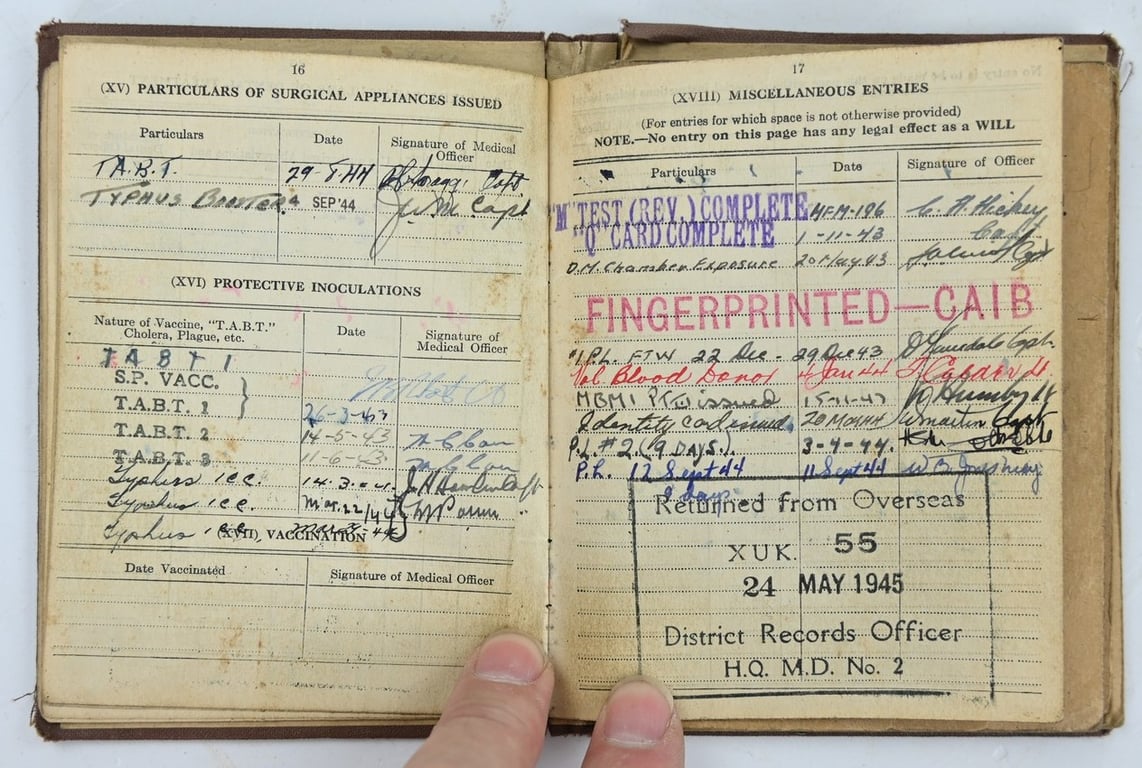 16
(XV) PARTICULARS OF SURGICAL APPLIANCES ISSUED
Particulars Date Signature of Medical Officer
T.A.B.T. Capt
TYPHUS BOOSTER SEP '44 Capt
(XVI) PROTECTIVE INOCULATIONS
Nature of Vaccine, "T.A.B.T." Cholera, Plague, etc. Date Signature of Medical Officer
T A B T 1
S.P. VACC.
T.A.B.T. 1 26-3-43
T.A.B.T. 2 14-5-43
T.A.B.T. 3 11-6-43
Typhus 1 cc.
Typhus 1 cc. Mar. 22/44
Typhus 1 cc.
(XVII) VACCINATION
Date Vaccinated Signature of Medical Officer
17
(XVIII) MISCELLANEOUS ENTRIES
(For entries for which space is not otherwise provided)
NOTE.—No entry on this page has any legal effect as a WILL
Particulars Date Signature of Officer
"M" TEST (REV.) COMPLETE MFM-196 Hickey
"Q" CARD COMPLETE 1-11-43 Capt
Chamber Exposure 20 May 43
FINGERPRINTED—CAIB
P.L. FTW 22 Dec. - 29 Dec 43
Vol Blood Donor 4 Jan 44
issued
Identity card issued Martin Capt
P.L. #2 (9 DAYS.) 3-4-44.
P.L. 12 Sept 44 11 Sept 44
9 days
Returned from Overseas
XUK. 55
24 MAY 1945
District Records Officer
H.Q. M.D. No. 2